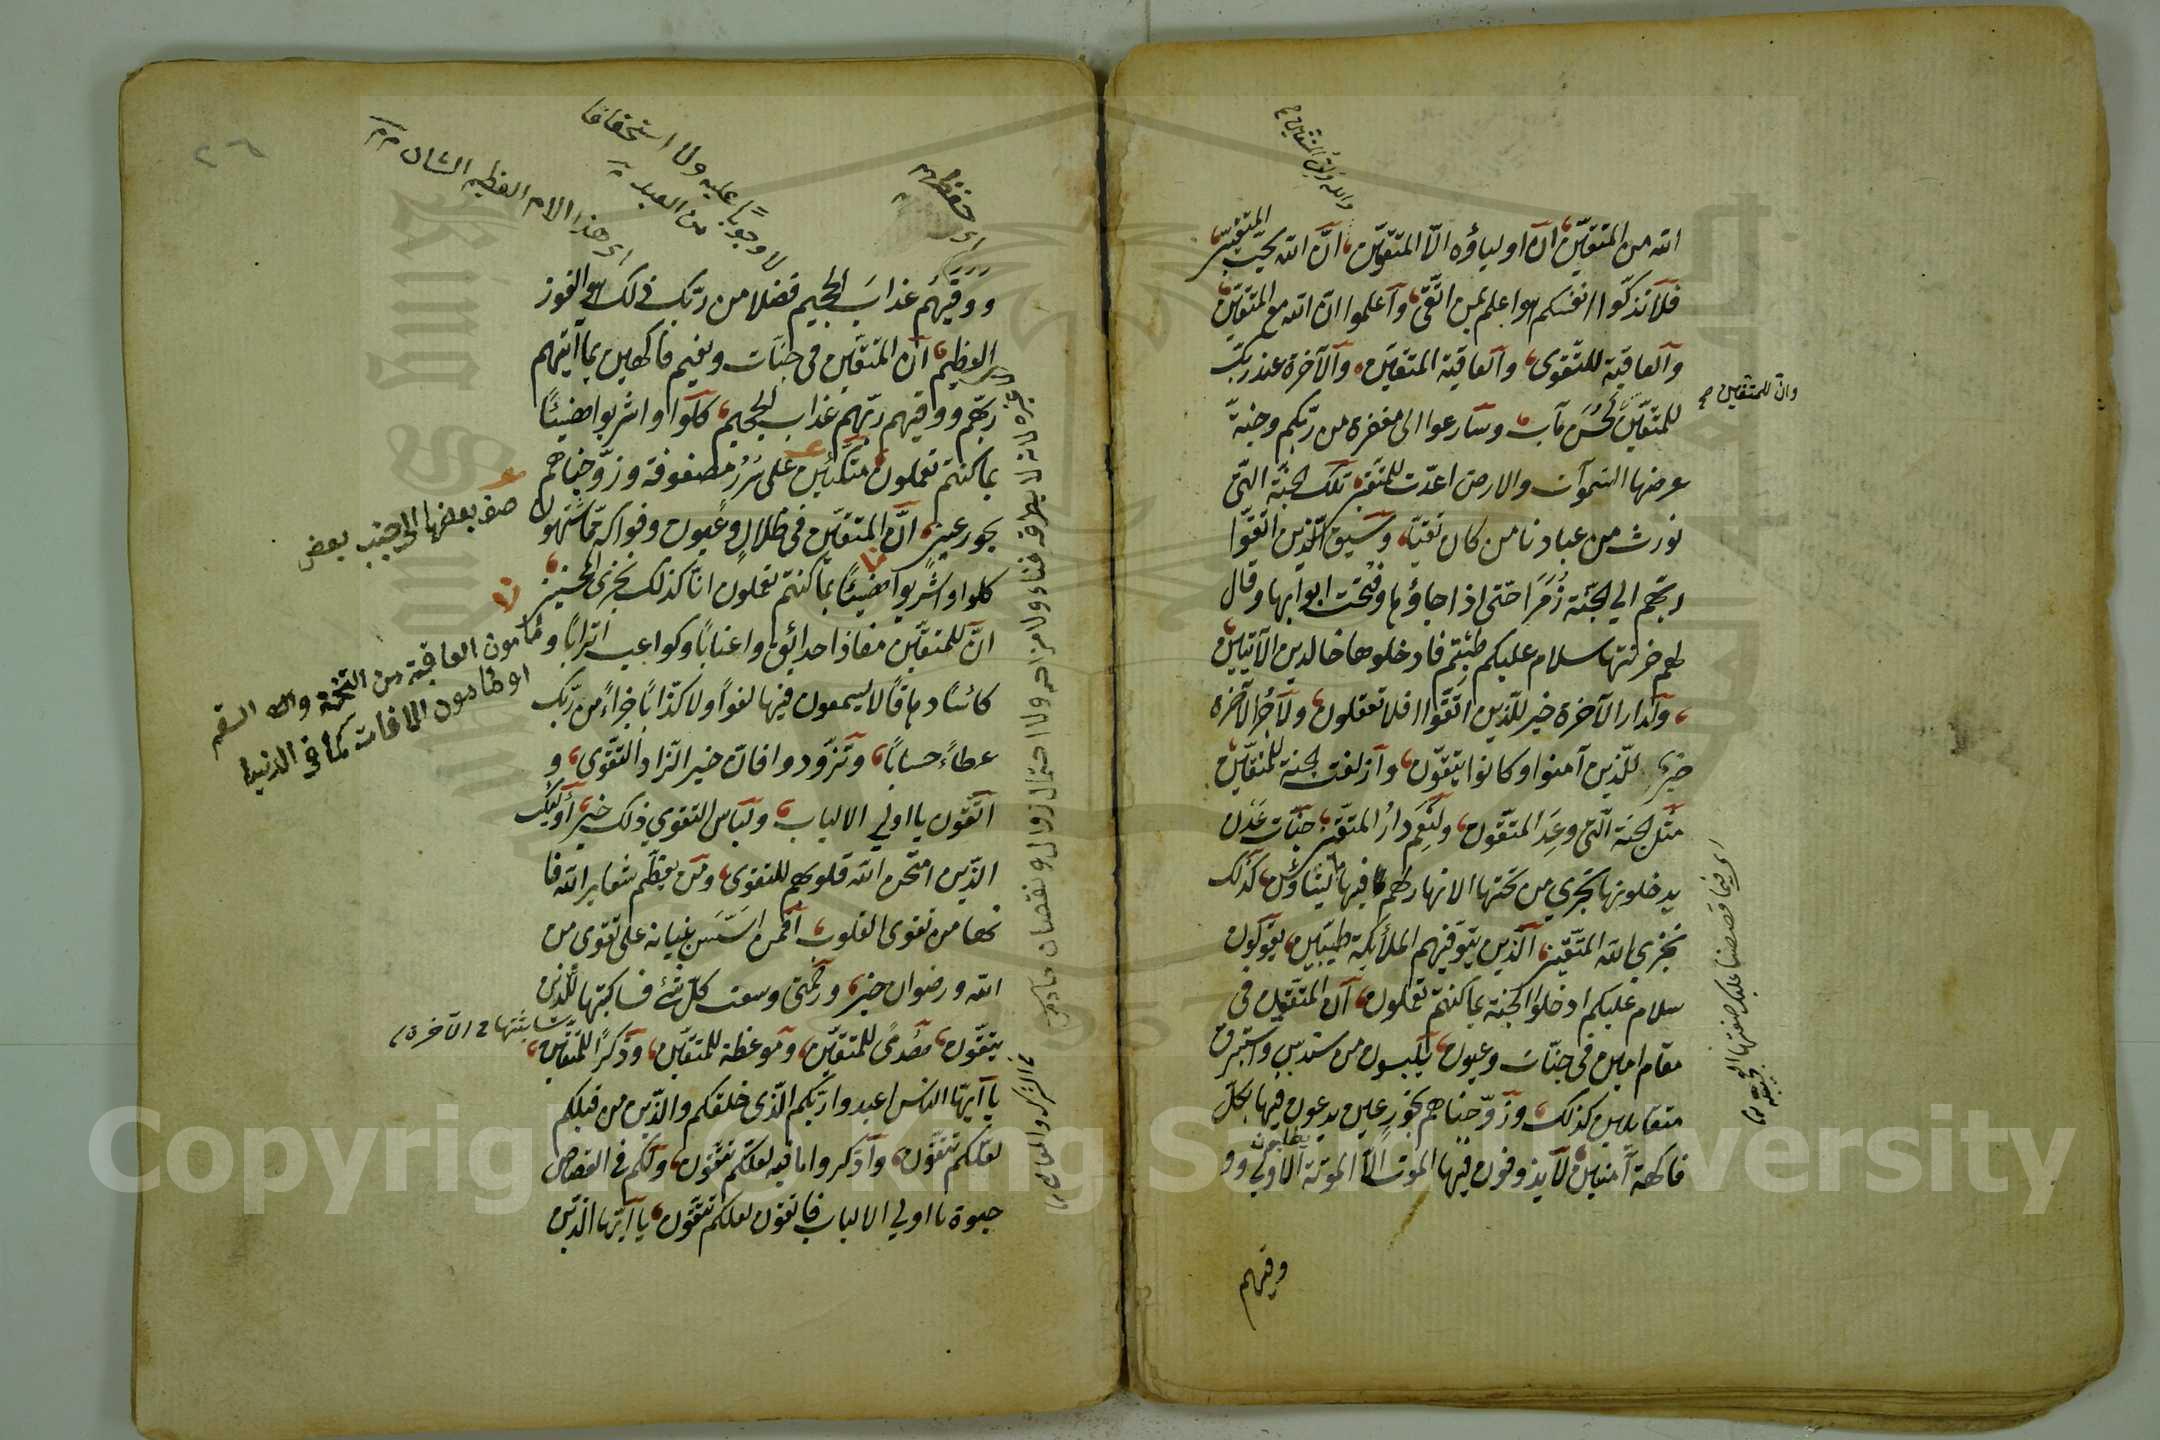 والله ولي المتقين
الله من المتقين ان اولياؤه الّا المتقون انّ الله يحبّ المتقين
فلا تزكّوا انفسكم هو اعلم بمن اتّقى واعلموا انّ الله مع المتقين
والعاقبة للتّقوى والعاقبة للمتقين والآخرة عند ربّك
وان للمتقين
للمتّقين لحُسن مآب وسارعوا الى مغفرة من ربّكم وجنّة
عرضها السّموات والارض اعدّت للمتقين تلك الجنّة التي
نورث من عبادنا من كان تقيّا وسيق الّذين اتّقوا
ربّهم الي الجنّة زُمَرًا حتى اذا جاؤها وفتحت ابوابها وقال
لهم خزنتها سلام عليكم طبتم فادخلوها خالدين
وللدار الآخرة خير للّذين اتّقوا افلا تعقلون ولأجرُ الآخرة
خير للّذين آمنوا وكانوا يتّقون وازلفت الجنة للمتّقين
مثل الجنة الّتي وعد المتّقون ولنعم دارُ المتقين جنّات عدن
يدخلونها تجري من تحتها الانهار لهم فيها ما يشاؤن كذلك
يجزي الله المتّقين الّذين تتوفّيهم الملائكة طيّبين يقولون
سلام عليكم ادخلوا الجنة بما كنتم تعملون انّ المتّقين في
مقام امين في جنّات وعيون يلبسون من سندس واستبرق
متقابلين كذلك وزوّجناهم بحور عين يدعون فيها بكلّ
يطلبون
فاكهة آمنين لا يذوقون فيها الموت الّا الموتة الاولي وو
وقيهم
اى فيما قصصنا عليك صفتها
٢٦
اى حفظهم
لا وجوبًا عليه ولا استحقاقا
من العبد
اى هذا الامر العظيم الشان
ووقيهم عذاب الجحيم فضلا من ربّك ذلك هو الفوز
العظيم انّ المتقين في جنّات ونعيم فاكهين بما آتيهم
ربّهم ووقيهم ربّهم عذاب الجحيم كلوا واشربوا هنيئًا
بما كنتم تعملون متّكئين على سُرُر مصفوفة وزوّجناهم
صف بعضها الى جنب بعض
بحور عين انّ المتقين في ظلال وعيون وفواكه ممّا يشتهون
كلوا واشربوا هنيئًا بما كنتم تعملون انّا كذلك نجزي المحسنين
انّ للمتقين مفازا حدائق واعنابًا وكواعب اترابًا و
كأسًا دهاقًا لا يسمعون فيها لغوًا ولا كذّابًا جزاءً من ربّك
عطاءً حسابًا وتزوّدوا فانّ خير الزّاد التّقوى و
اتّقون يا اولي الالباب ولباس التقوي ذلك خير اولئك
الّذين امتحن الله قلوبهم للتقوى ومن يعظّم شعاير الله فا
نها من تقوى القلوب افمن اسّس بنيانه على تقوى من
الله ورضوان خير ورحمتى وسعت كلّ شئ فساكتبها للّذين
يتّقون هدى للمتقين وموعظة للمتقين وذكرًا للمتّقين
يا ايّها الناس اعبدوا ربّكم الّذى خلقكم والّذين من قبلكم
لعلّكم تتّقون واذكروا ما فيه لعلّكم تتّقون ولكم في القصاص
حيوة يا اولي الالباب فاتقون لعلّكم تتّقون يا ايّها الذّين